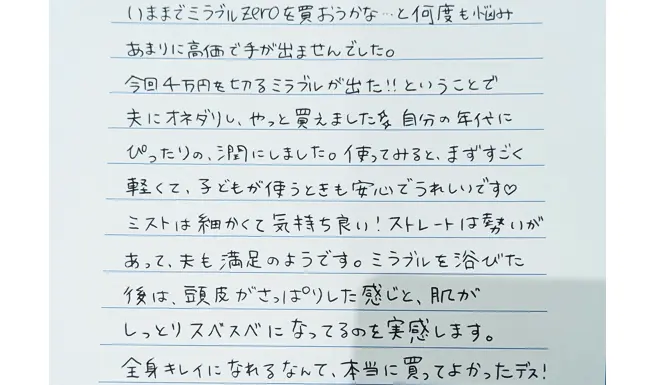 いままでミラブルzeroを買おうかな…と何度も悩み
あまりに高価で手が出ませんでした。
今回4万円を切るミラブルが出た!!ということで
夫にオネダリし、やっと買えました 自分の年代に
ぴったりの、潤にしました。使ってみると、まずすごく
軽くて、子どもが使うときも安心でうれしいです♡
ミストは細かくて気持ち良い!ストレートは勢いが
あって、夫も満足のようです。ミラブルを浴びた
後は、頭皮がさっぱりした感じと、肌が
しっとりスベスベになってるのを実感します。
全身キレイになれるなんて、本当に買ってよかったデス!